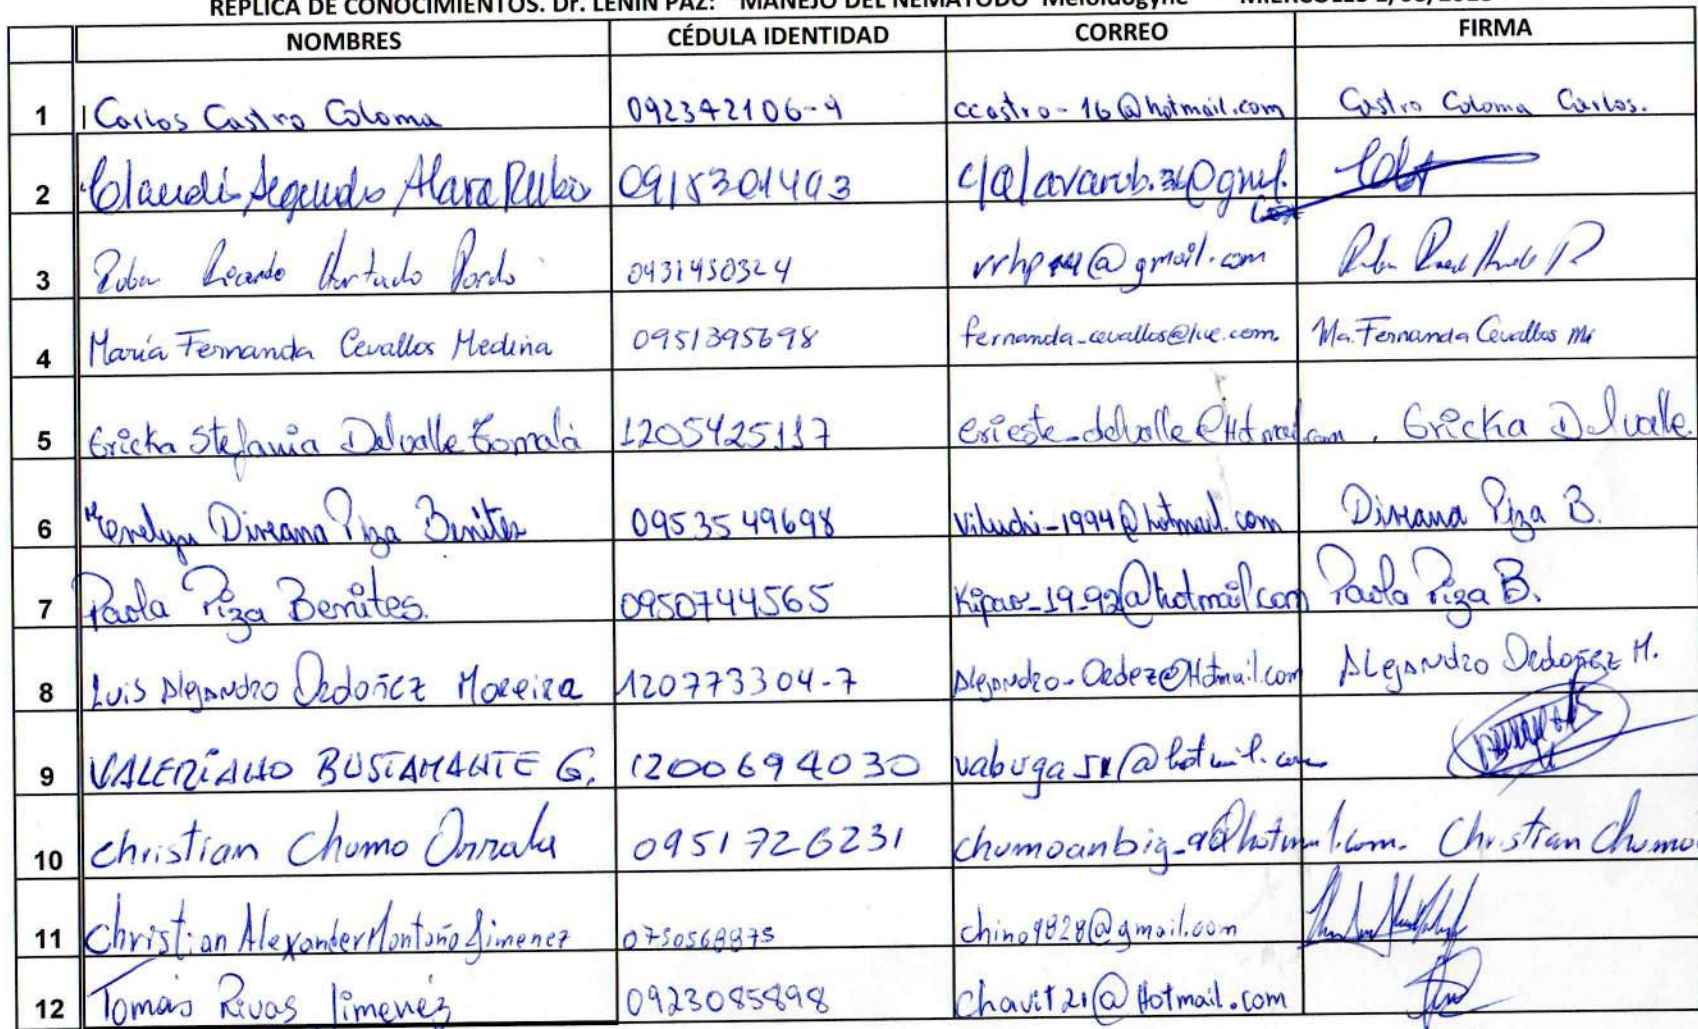 REPLICA DE CONOCIMIENTOS. Dr. LENIN PAZ: MANEJO DEL NEMATODO Meloidogyne MIERCOLES
NOMBRES CÉDULA IDENTIDAD CORREO FIRMA
1 Carlos Castro Coloma 092342106-4 ccastro-16@hotmail.com Castro Coloma Carlos.
2 Segundo Alava Rubio 0918301403
3 Ruben Ricardo Hurtado Pardo 0931450324 @gmail.com
4 María Fernanda Cevallos Medina 0951395698 fernanda_cevallos@live.com. Ma. Fernanda Cevallos
5 Ericka Stefania Delvalle Tomalá 1205425117 erieste_delvalle@Hotmail.com. Ericka Delvalle.
6 Evelyn Direana Piza Benites 0953549698 viluchi-1994@hotmail.com Direana Piza B.
7 Paola Piza Benites. 0950744565 Kipao_19_92@hotmail.com Paola Piza B.
8 Luis Alejandro Ordoñez Moreira 120773304-7 Alejandro-Ordez@Hotmail.com Alejandro Ordoñez M.
9 VALERIANO BUSTAMANTE G. 1200694030
10 Christian Chumo Orrala 0951726231 chumoanbig_9@hotmail.com. Christian Chumo
11 Christian Alexander Montaño Jimenez 0750568875 chino9828@gmail.com
12 Tomás Rivas Jimenez 0923085898 chavit21@Hotmail.com